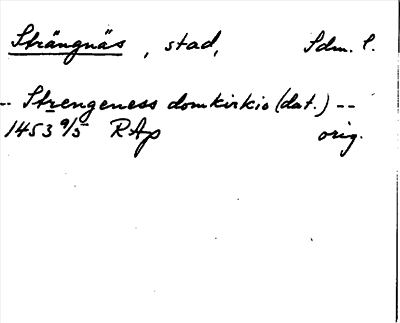 Strängnäs, stad, Sdm. l.
-- Strengeness domkirkio (dat.) --
1453 9/5 RAp orig.